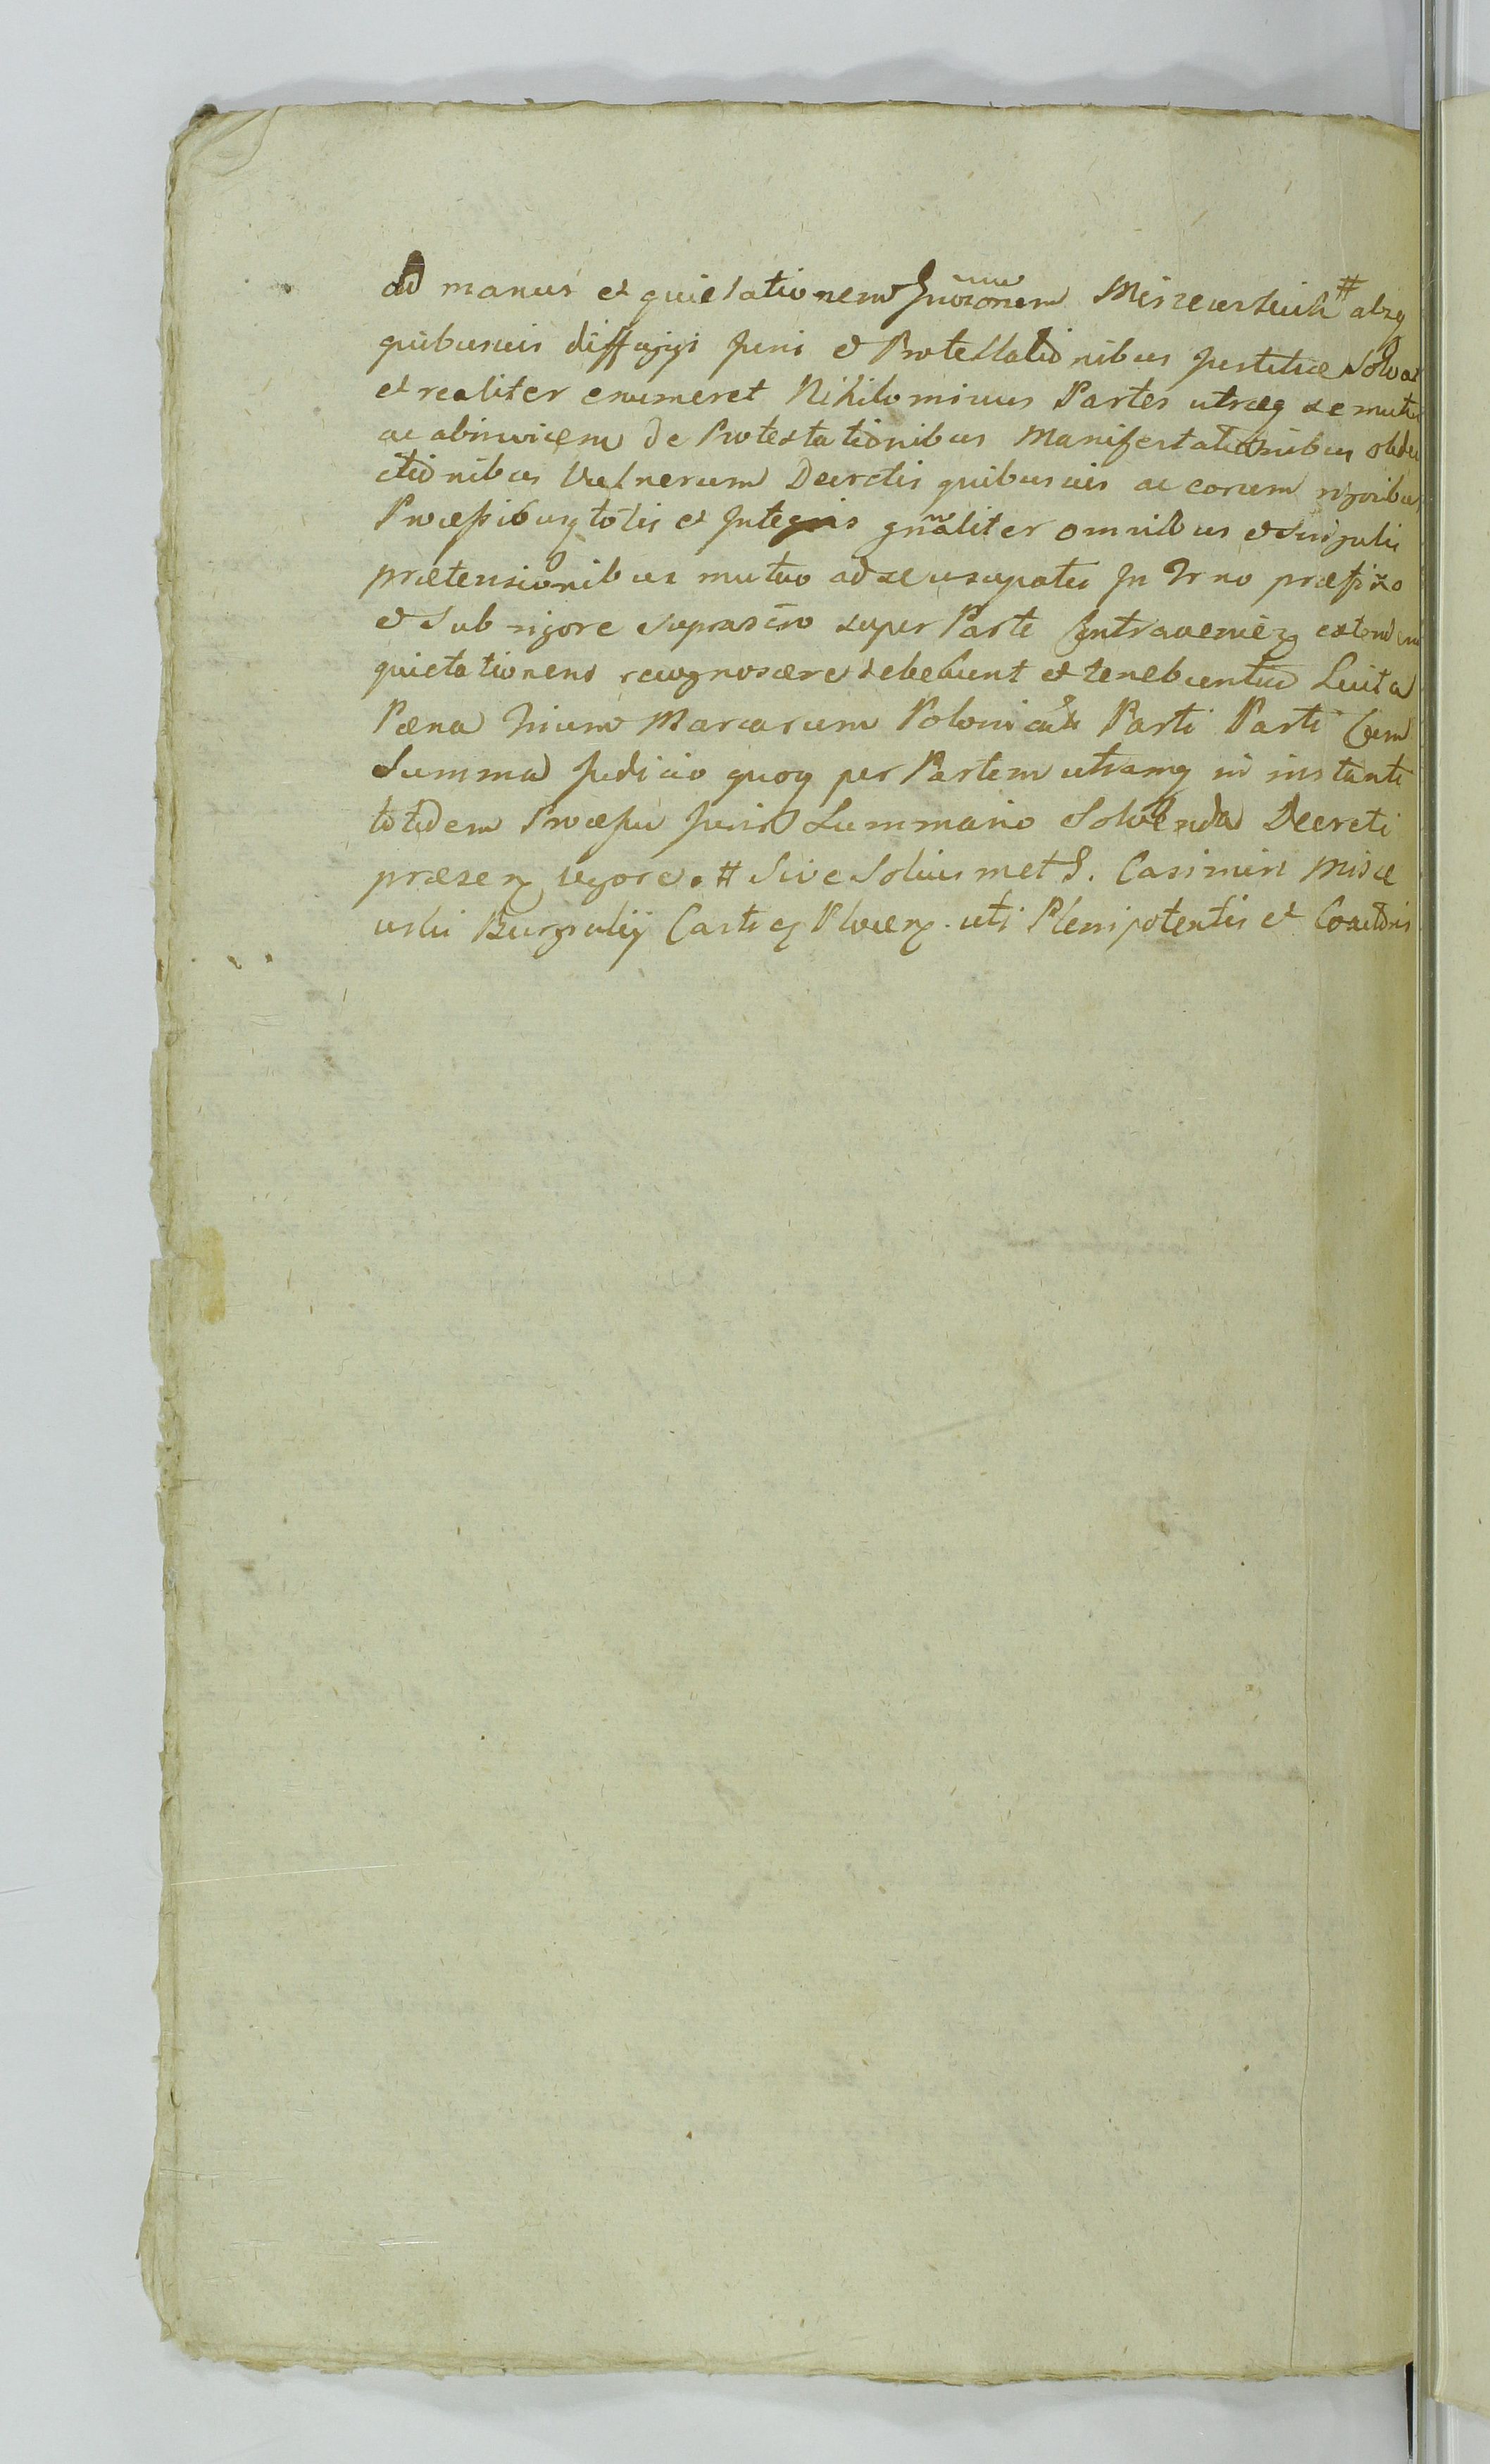 ad manus et quietationem Gnōrorum Miszewskich # absq
quibusvis diffugijs Juris et Protestationibus Justitiæ Solvat
et realiter enumeret Nihilominus Partes utræq se mutuo
ac abinvicem de Protestationibus Manifestationibus obdu
ctionibus Vulnerum Decretis quibusvis ac eorum rigoribus
Processibusq totis et Integris gnāliter omnibus et singulis
prætensionibus mutuo ad se usupatis In Trno præfixo
et Sub rigore suprascrō super Parte Contraveniēn extendēn
quietationem recognoscere debebunt et tenebuntur Luita
Pæna Trium Marcarum Polonicalium Parti Parti Cum
Summa Judicio quoq per Partem utramq in instanti
totidem Processu Juris Summario Solvenda Decreti
præsen vigore. # Sive Soliusmet G. Casimiri Misze
wski Burgrabij Castren Plocen. uti Plenipotentis et Coactoris